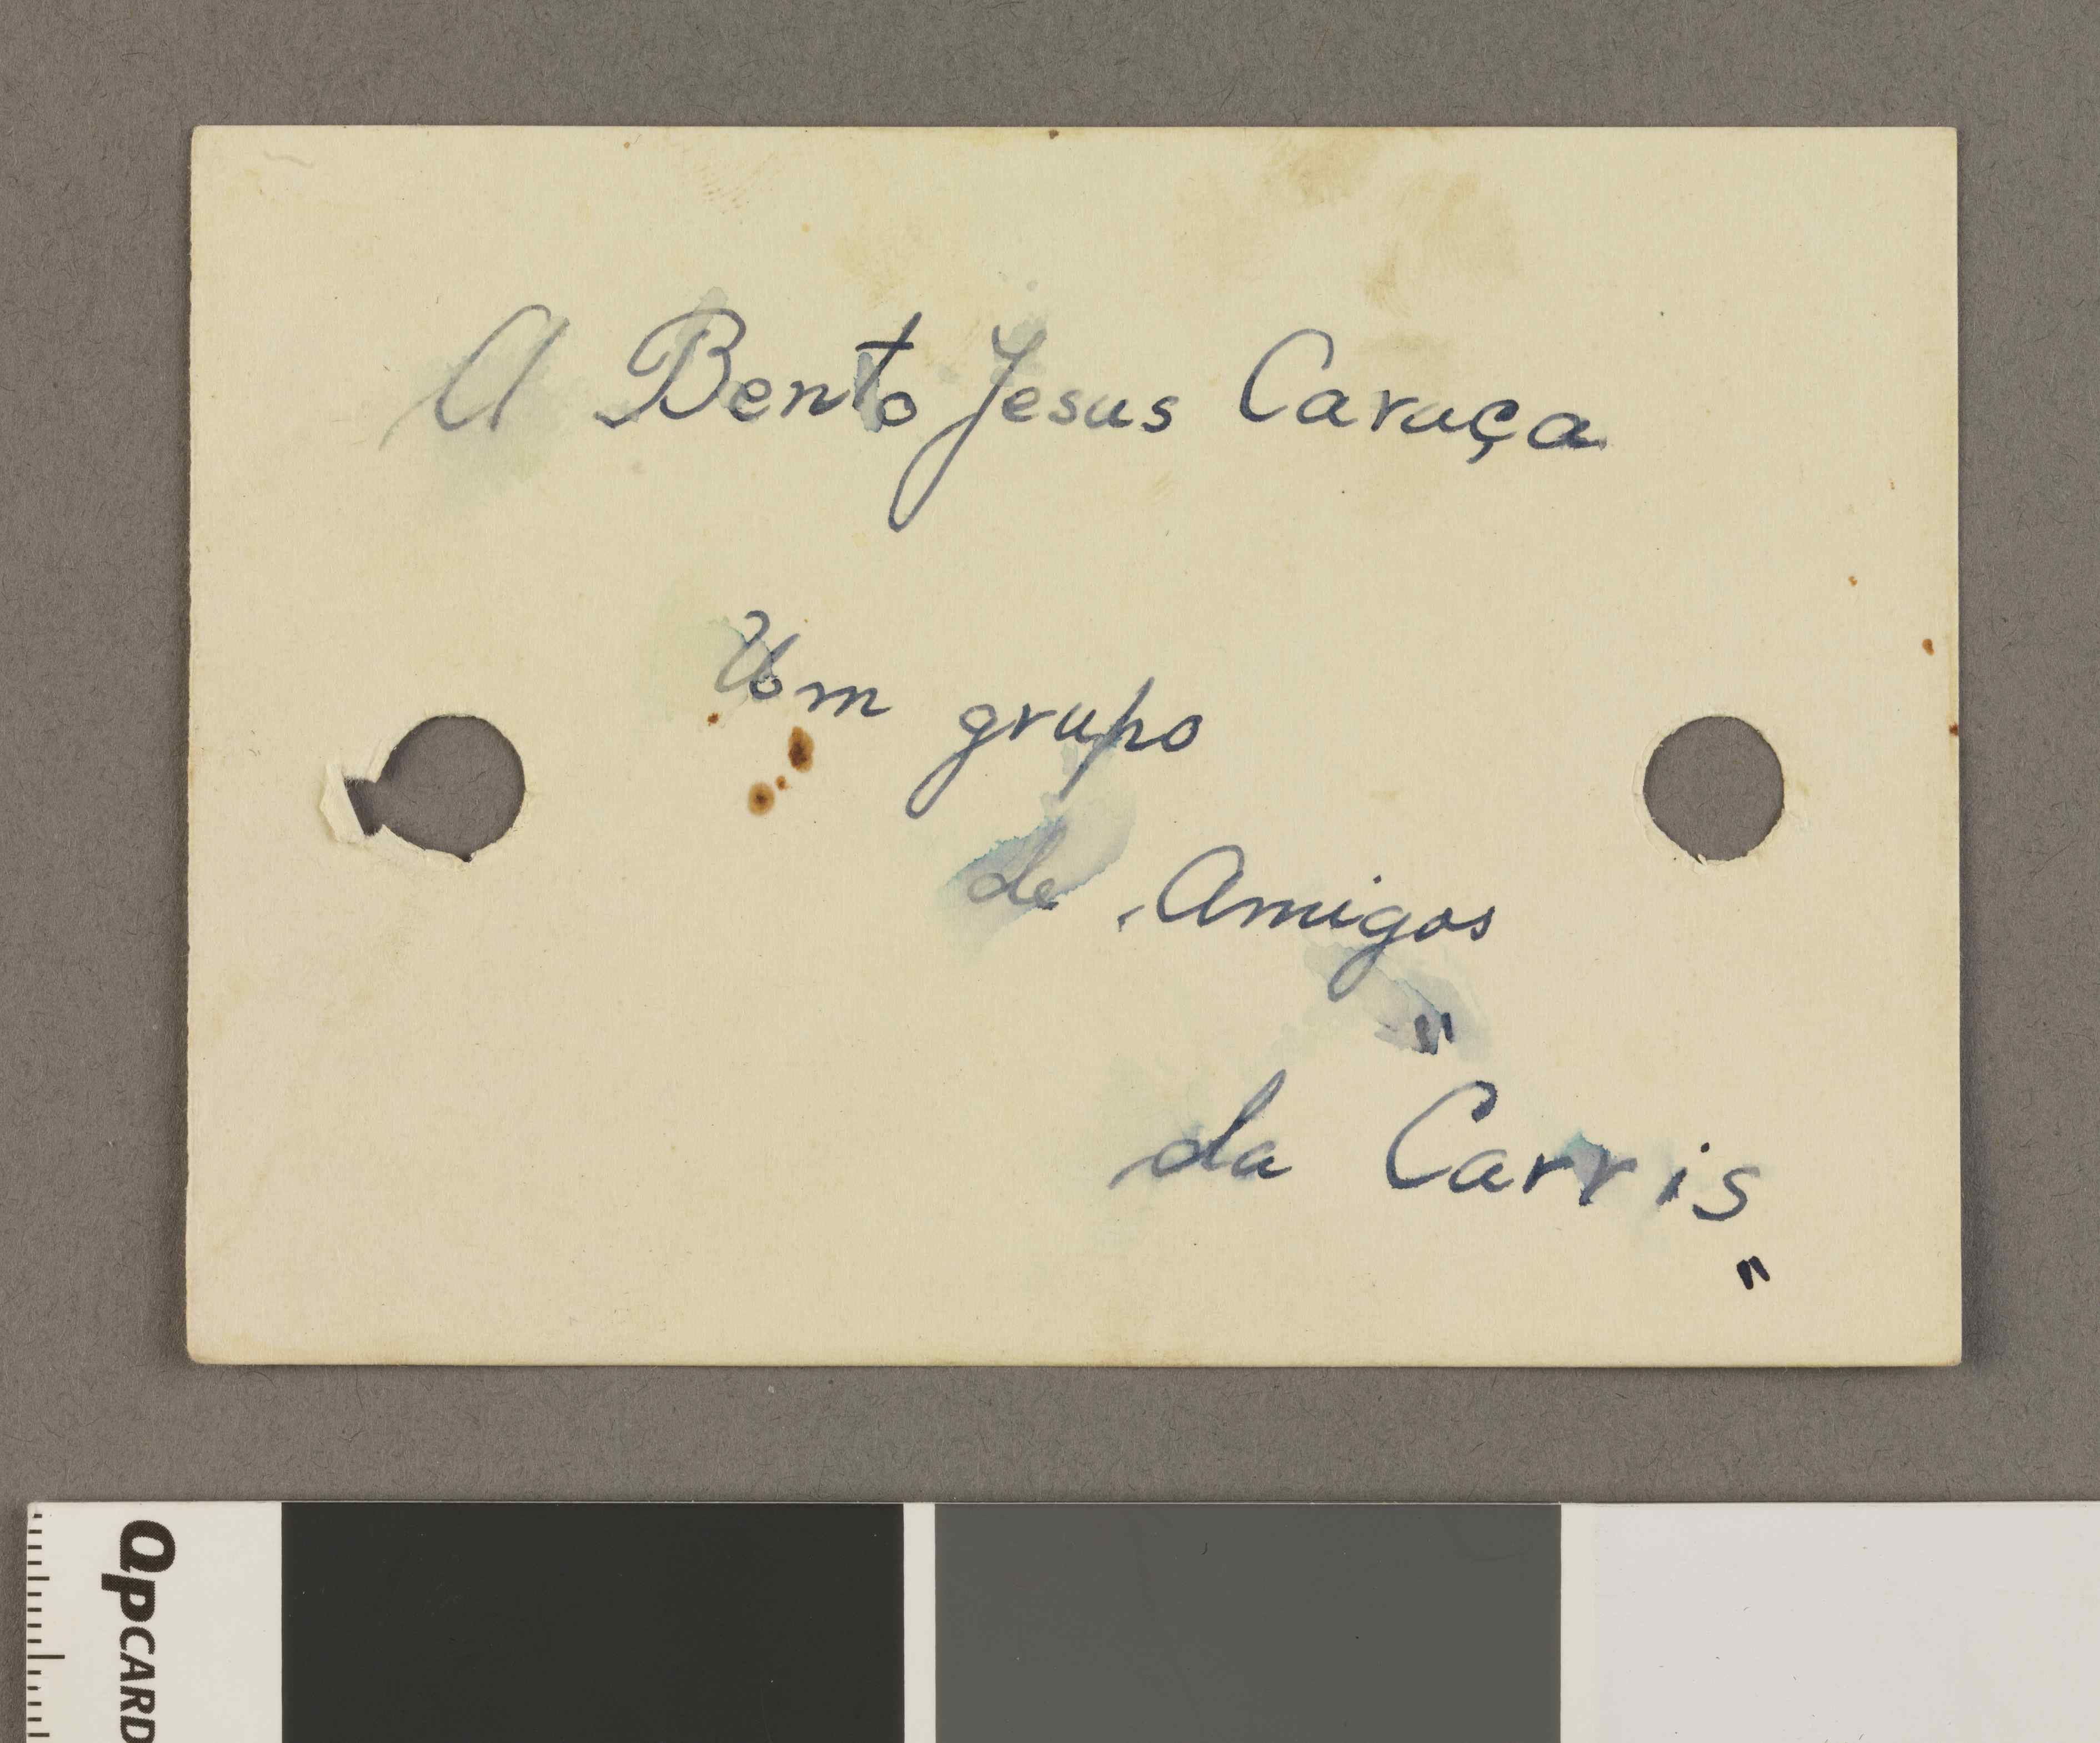 A Bento Jesus Caraça
Um grupo
de Amigos
da "Carris"
QPCARD